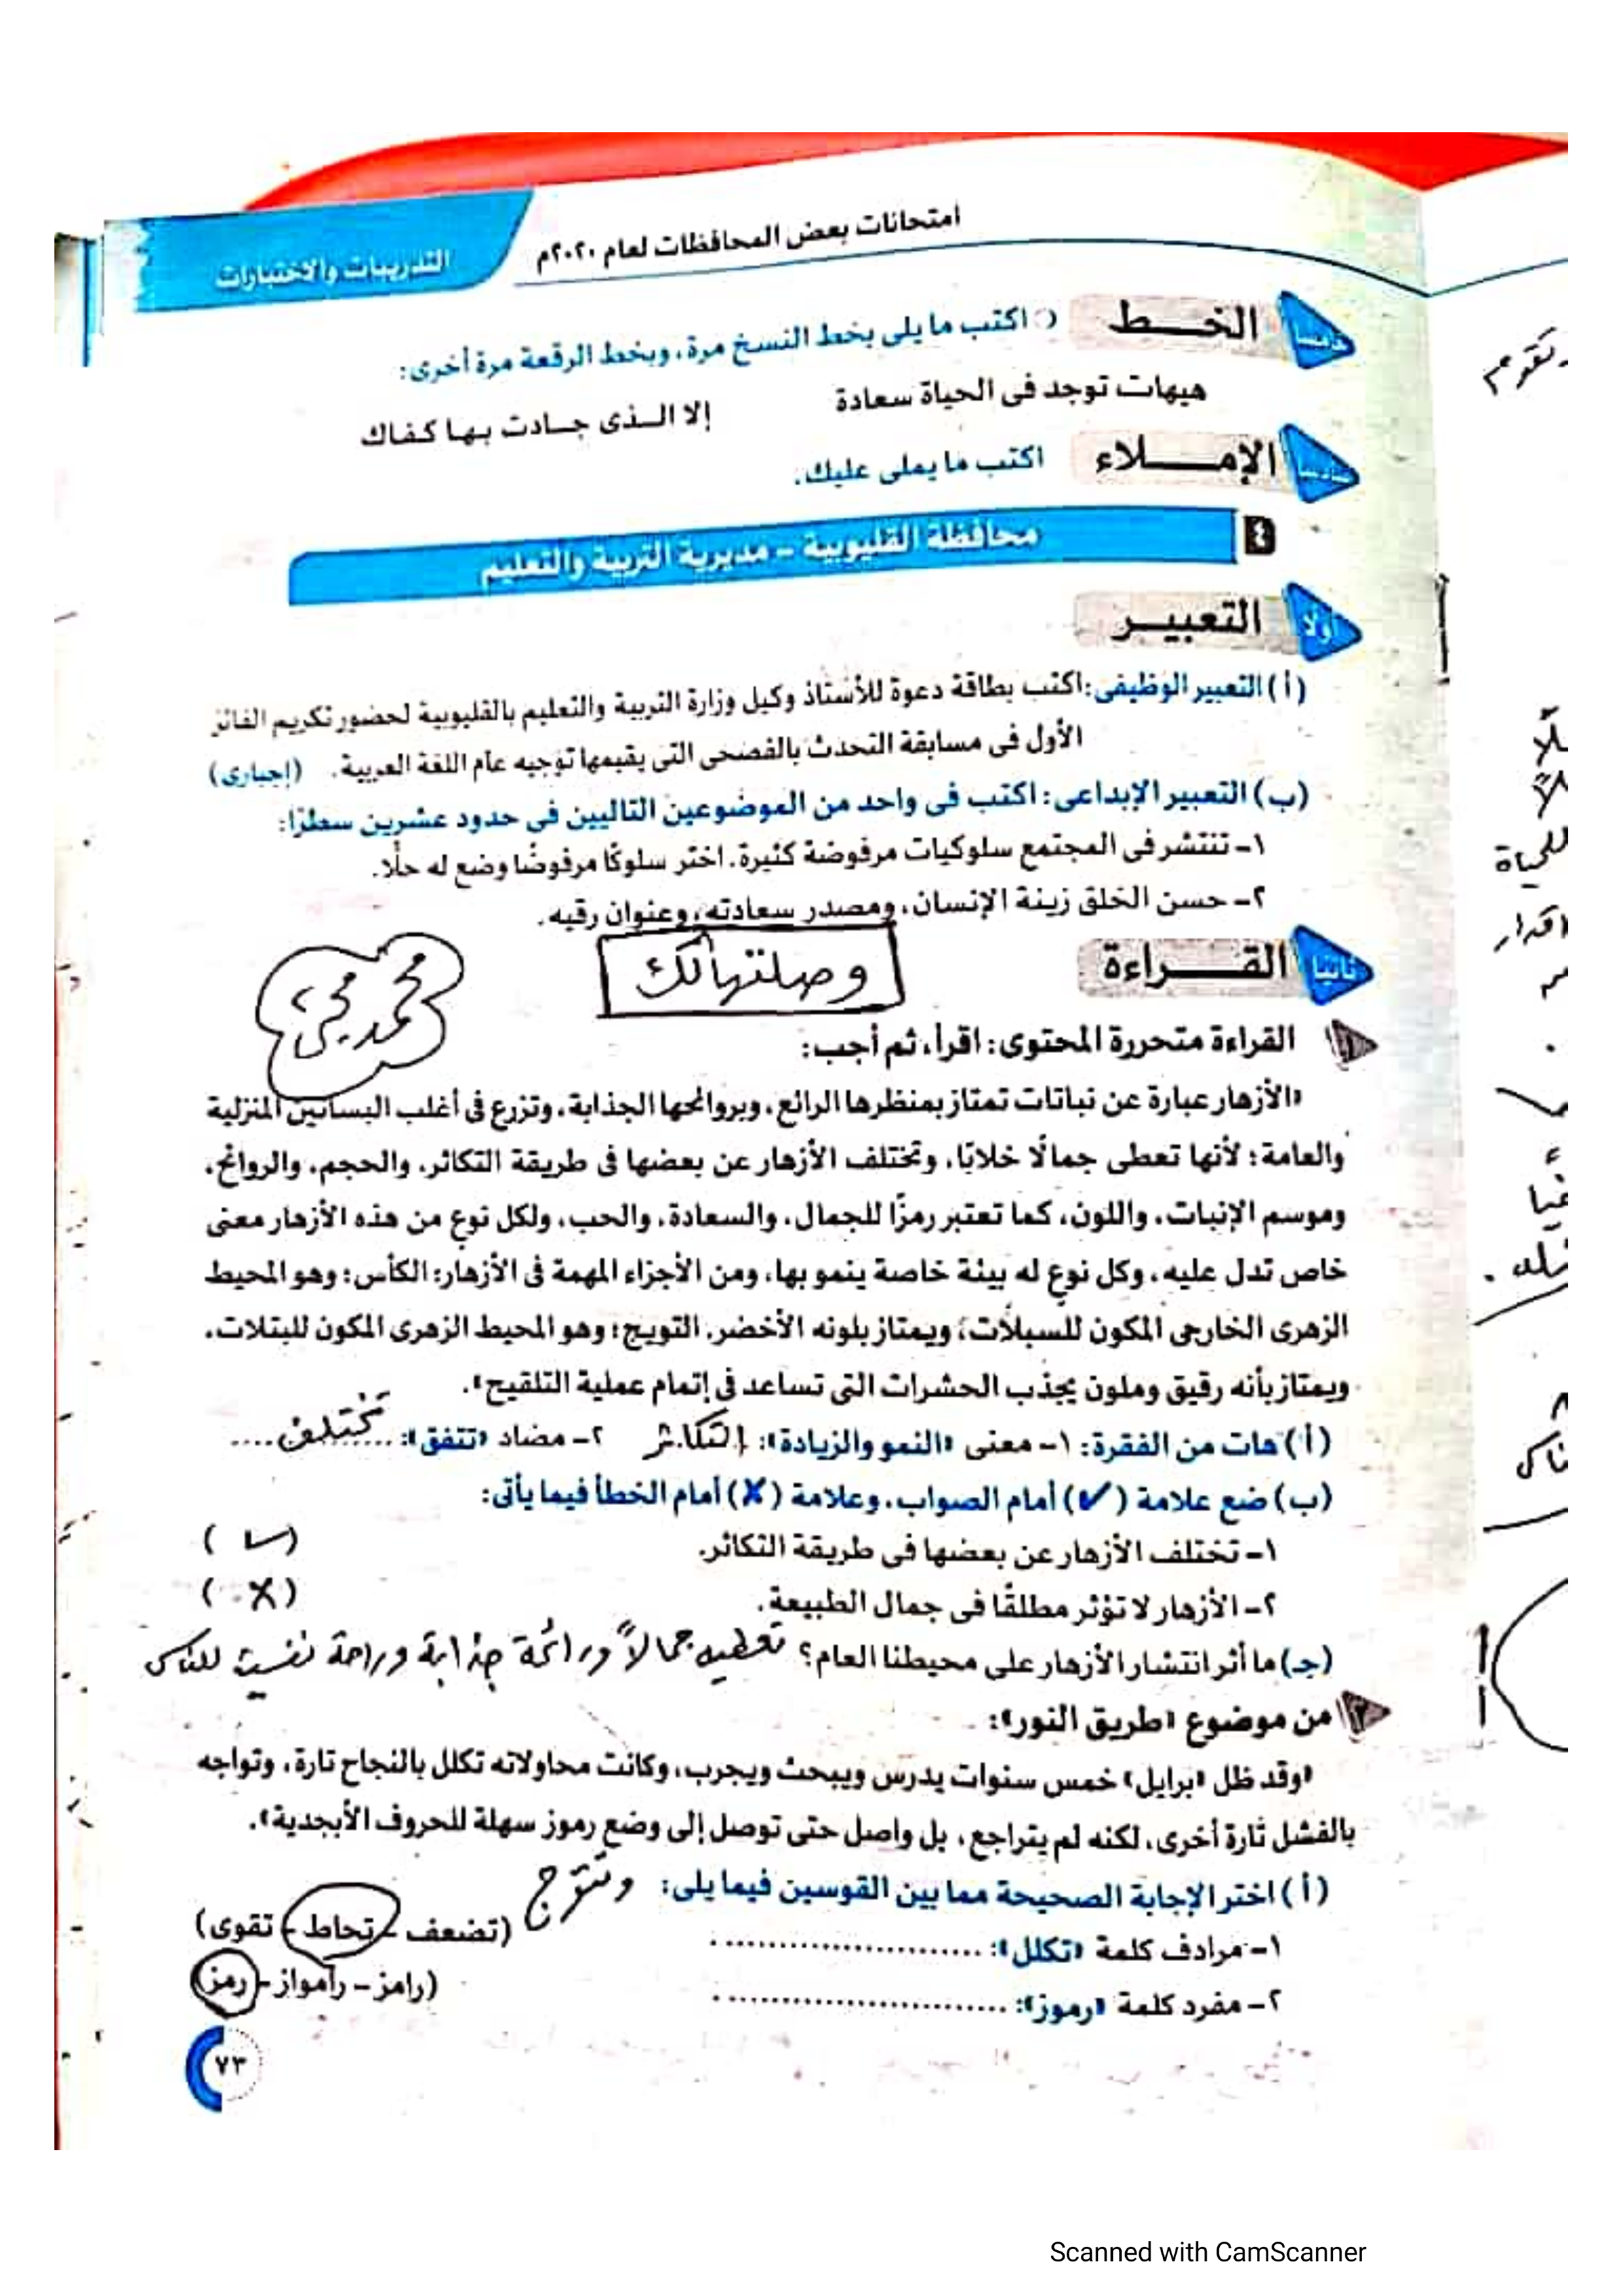 امتحانات بعض المحافظات لعام ٢٠٢٠م
التدريبات والاختبارات
خامسا الخـــط اكتب ما يلى بخط النسخ مرة، وبخط الرقعة مرة أخرى:
هيهات توجد فى الحياة سعادة إلا الـذى جـادت بـهـا كـفـاك
الإمـــلاء اكتب ما يملى عليك.
٤ محافظة القليوبية - مديرية التربية والتعليم
أولا التعبيــر
(أ) التعبير الوظيفى: اكتب بطاقة دعوة للأستاذ وكيل وزارة التربية والتعليم بالقليوبية لحضور تكريم الفائز
الأول فى مسابقة التحدث بالفصحى التى يقيمها توجيه عام اللغة العربية. (إجبارى)
(ب) التعبير الإبداعى: اكتب فى واحد من الموضوعين التاليين فى حدود عشرين سطرًا:
١- تنتشر فى المجتمع سلوكيات مرفوضة كثيرة. اختر سلوكًا مرفوضًا وضع له حلًا.
٢- حسن الخلق زينة الإنسان، ومصدر سعادته، وعنوان رقيه.
ثانيا القـــراءة
وصلتهالك
محمد محيى
١ القراءة متحررة المحتوى: اقرأ، ثم أجب:
«الأزهار عبارة عن نباتات تمتاز بمنظرها الرائع، وبروائحها الجذابة، وتزرع فى أغلب البساتين المنزلية
والعامة؛ لأنها تعطى جمالًا خلابًا، وتختلف الأزهار عن بعضها فى طريقة التكاثر، والحجم، والروائح،
وموسم الإنبات، واللون، كما تعتبر رمزًا للجمال، والسعادة، والحب، ولكل نوع من هذه الأزهار معنى
خاص تدل عليه، وكل نوع له بيئة خاصة ينمو بها، ومن الأجزاء المهمة فى الأزهار: الكأس: وهو المحيط
الزهرى الخارجى المكون للسبلات؛ ويمتاز بلونه الأخضر. التويج: وهو المحيط الزهرى المكون للبتلات،
ويمتاز بأنه رقيق وملون يجذب الحشرات التى تساعد فى إتمام عملية التلقيح».
(أ) هات من الفقرة: ١- معنى «النمو والزيادة»: التكاثر ٢- مضاد «تتفق»: تختلف
(ب) ضع علامة (✓) أمام الصواب، وعلامة (✗) أمام الخطأ فيما يأتى:
١- تختلف الأزهار عن بعضها فى طريقة التكاثر. (✓)
٢- الأزهار لا تؤثر مطلقًا فى جمال الطبيعة. (✗)
(جـ) ما أثر انتشار الأزهار على محيطنا العام؟ تعطيه جمالاً ورائحة جذابة وراحة نفسية للناس
٢ من موضوع «طريق النور»:
«وقد ظل «برايل» خمس سنوات يدرس ويبحث ويجرب، وكانت محاولاته تكلل بالنجاح تارة، وتواجه
بالفشل تارة أخرى، لكنه لم يتراجع، بل واصل حتى توصل إلى وضع رموز سهلة للحروف الأبجدية».
(أ) اختر الإجابة الصحيحة مما بين القوسين فيما يلى: وتتوج
١- مرادف كلمة «تكلل»: .............................. (تضعف - تحاط - تقوى)
٢- مفرد كلمة «رموز»: .............................. (رامز - رامواز - رمز)
٧٣
تقوم
للحياة
Scanned with CamScanner